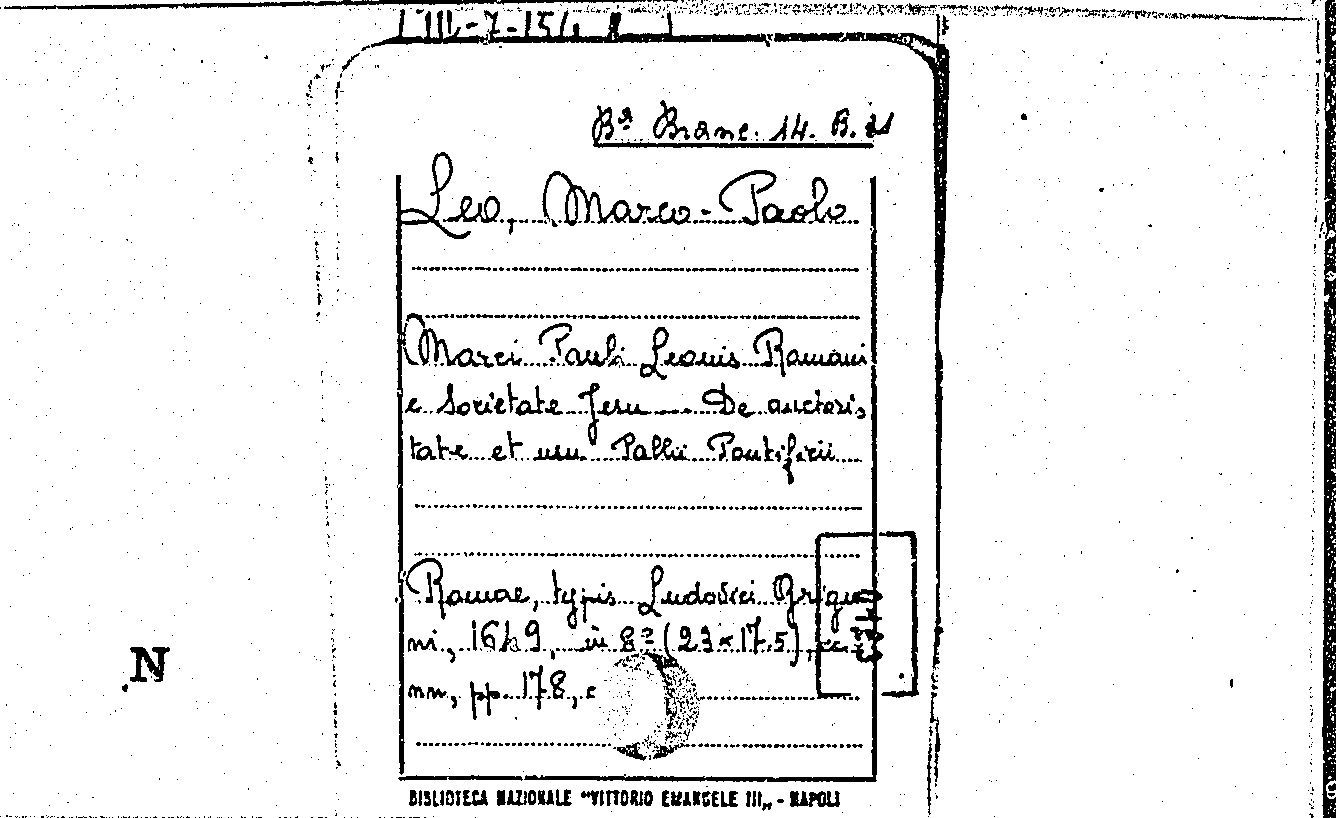 Bª Branc. 14. B. 21
Leo, Marco-Paolo
Marci Pauli Leonis Romani
e Societate Jesu — De auctori-
tate et usu Pallii Pontificii
Romae, typis Ludovici Grigna
ni, 1649, in 8º (23×17.5), cc.
nn, pp. 178, c
N
BIBLIOTECA NAZIONALE "VITTORIO EMANUELE III„ - NAPOLI